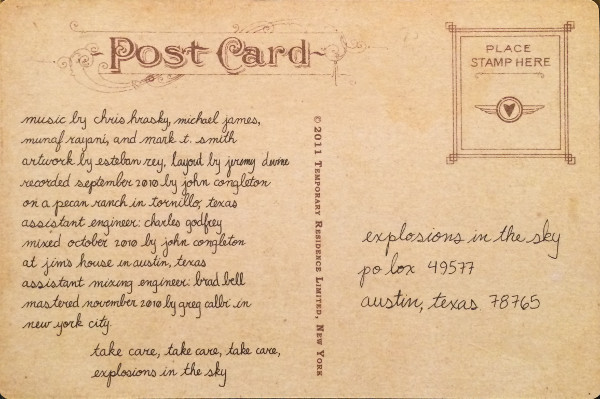 Post Card
PLACE
STAMP HERE
music by chris hrasky, michael james,
munaf rayani, and mark t. smith
artwork by esteban rey, layout by jeremy devine
recorded september 2010 by john congleton
on a pecan ranch in tornillo, texas
assistant engineer: charles godfrey
mixed october 2010 by john congleton
at jim's house in austin, texas
assistant mixing engineer: brad bell
mastered november 2010 by greg calbi in
new york city.
take care, take care, take care,
explosions in the sky
© 2011 TEMPORARY RESIDENCE LIMITED, NEW YORK
explosions in the sky
po box 49577
austin, texas 78765